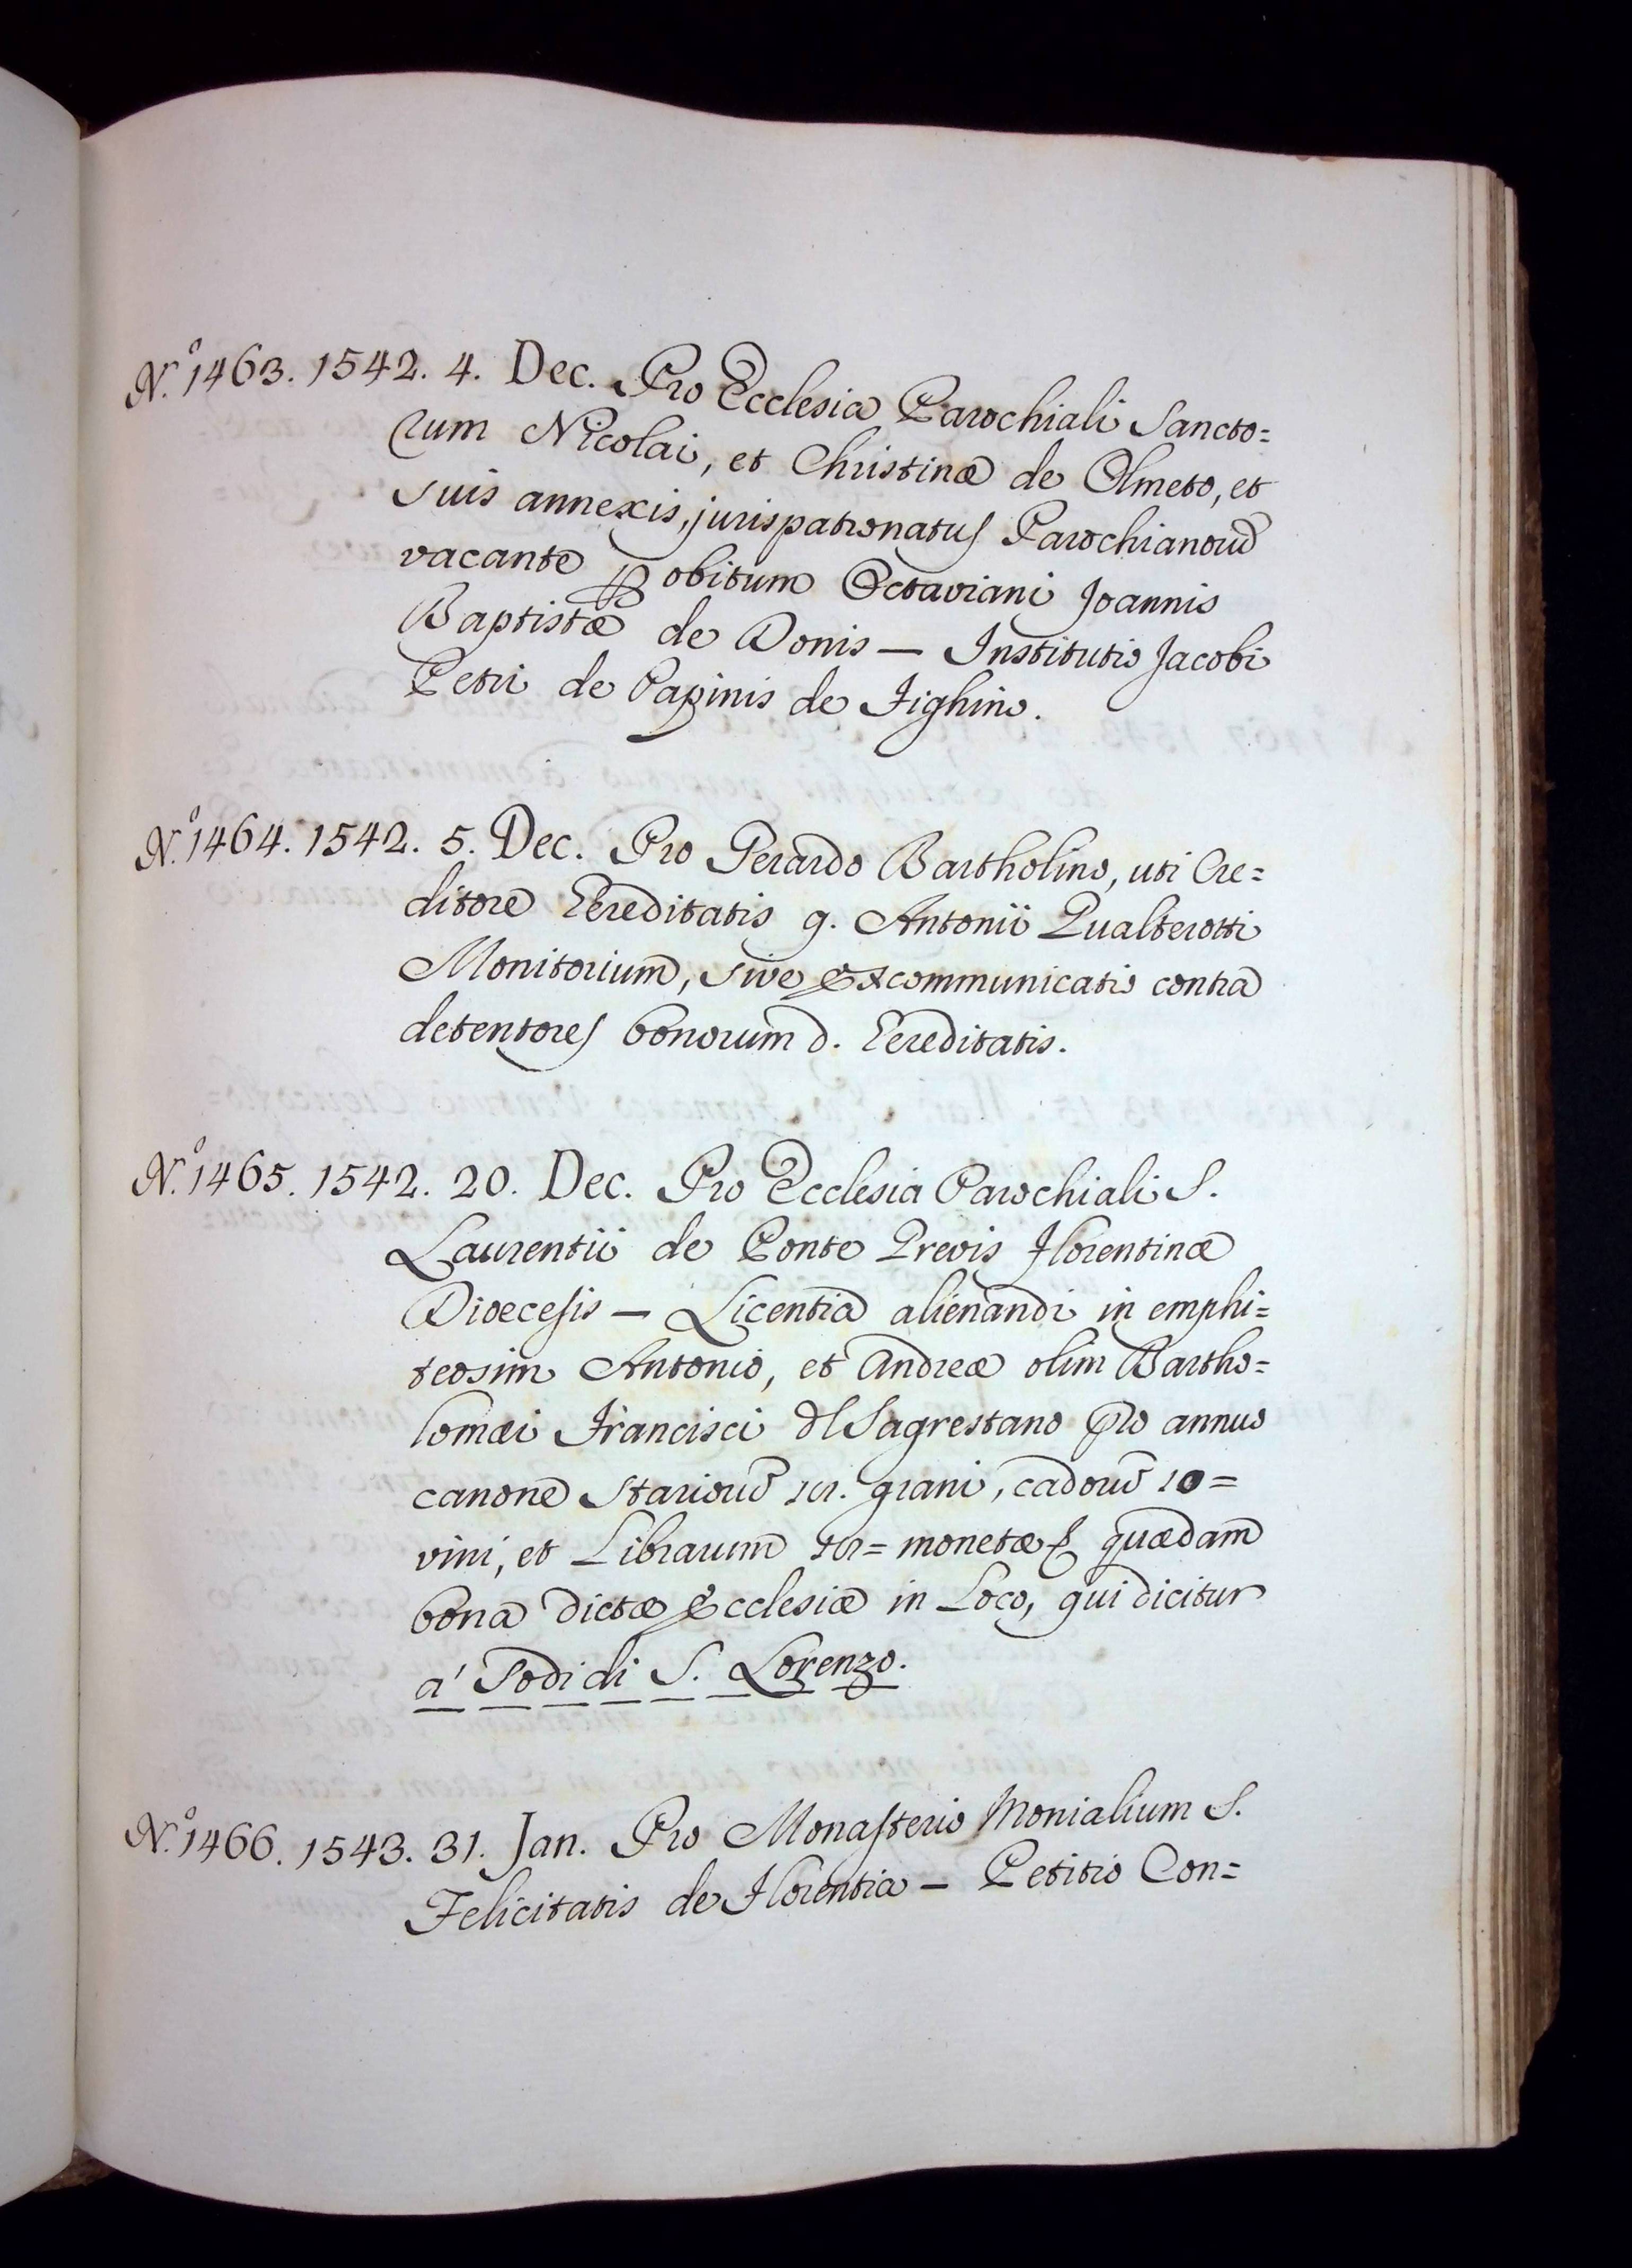 N.º 1463. 1542. 4. Dec. Pro Ecclesia Parochiali Sancto=
rum Nicolai, et Christinæ de Olmeto, et
suis annexis, jurispatronatus Parochianorũ
vacante ꝑ obitum Octaviani Joannis
Baptistæ de Donis — Institutio Jacobi
Petri de Papinis de Fighino.
N.º 1464. 1542. 5. Dec. Pro Gerardo Bartholino, uti Cre=
ditore Hereditatis q. Antonii Gualterotti
Monitorium, sive Excommunicatio contra
detentores bonorum d. Hereditatis.
N.º 1465. 1542. 20. Dec. Pro Ecclesia Parochiali S.
Laurentii de Ponte Grevis Florentinæ
Dioecesis — Licentia alienandi in emphi=
teosim Antonio, et Andreæ olim Bartho=
lomæi Francisci dl Sagrestano pro annuo
canone Stariorũ grani, cadorũ 10=
vini, et Librarum monetæ quædam
bona dictæ Ecclesiæ in Loco, qui dicitur
a' Sodi di S. Lorenzo.
N.º 1466. 1543. 31. Jan. Pro Monasterio Monialium S.
Felicitatis de Florentia — Petitio Con=